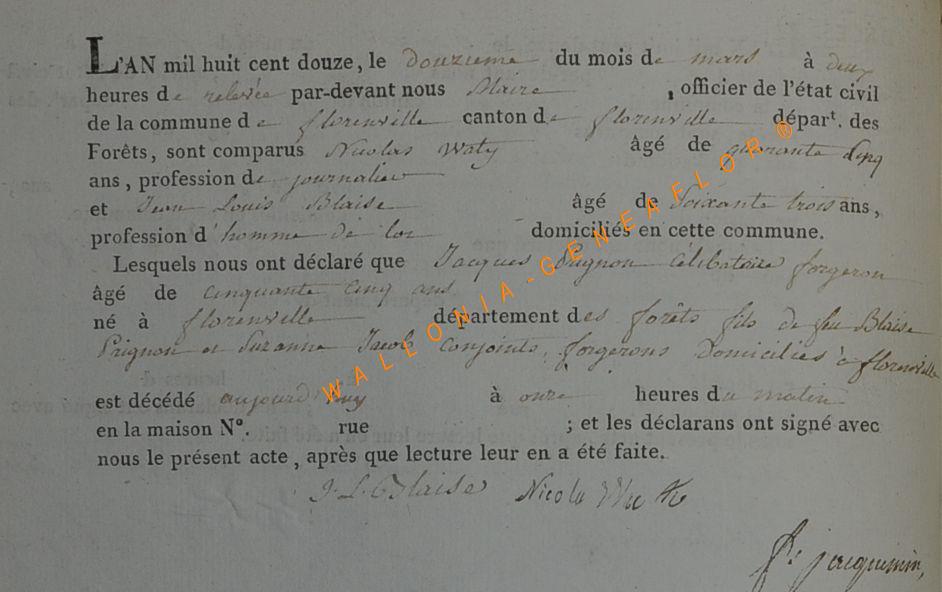 L'AN mil huit cent douze, le douzieme du mois de mars à deux
heures de relevée par-devant nous Blaise, officier de l'état civil
de la commune de florenville canton de florenville départ. des
Forêts, sont comparus Nicolas Waty âgé de quarante cinq
ans, profession de journalier
et Jean Louis Blaise âgé de Soixante trois ans,
profession d'homme de loi domiciliés en cette commune.
Lesquels nous ont déclaré que Jacques Prignon célibataire forgeron
âgé de cinquante cinq ans
né à florenville département des forêts fils de feu Blaise
Prignon et Suzanne Jacob conjoints, forgerons Domiciliés à florenville
est décédé aujourd'huy à onze heures du matin
en la maison N°. rue ; et les déclarans ont signé avec
nous le présent acte, après que lecture leur en a été faite.
J L Blaise Nicola
jacquemin,
WALLONIA-GENEAFLOR ®